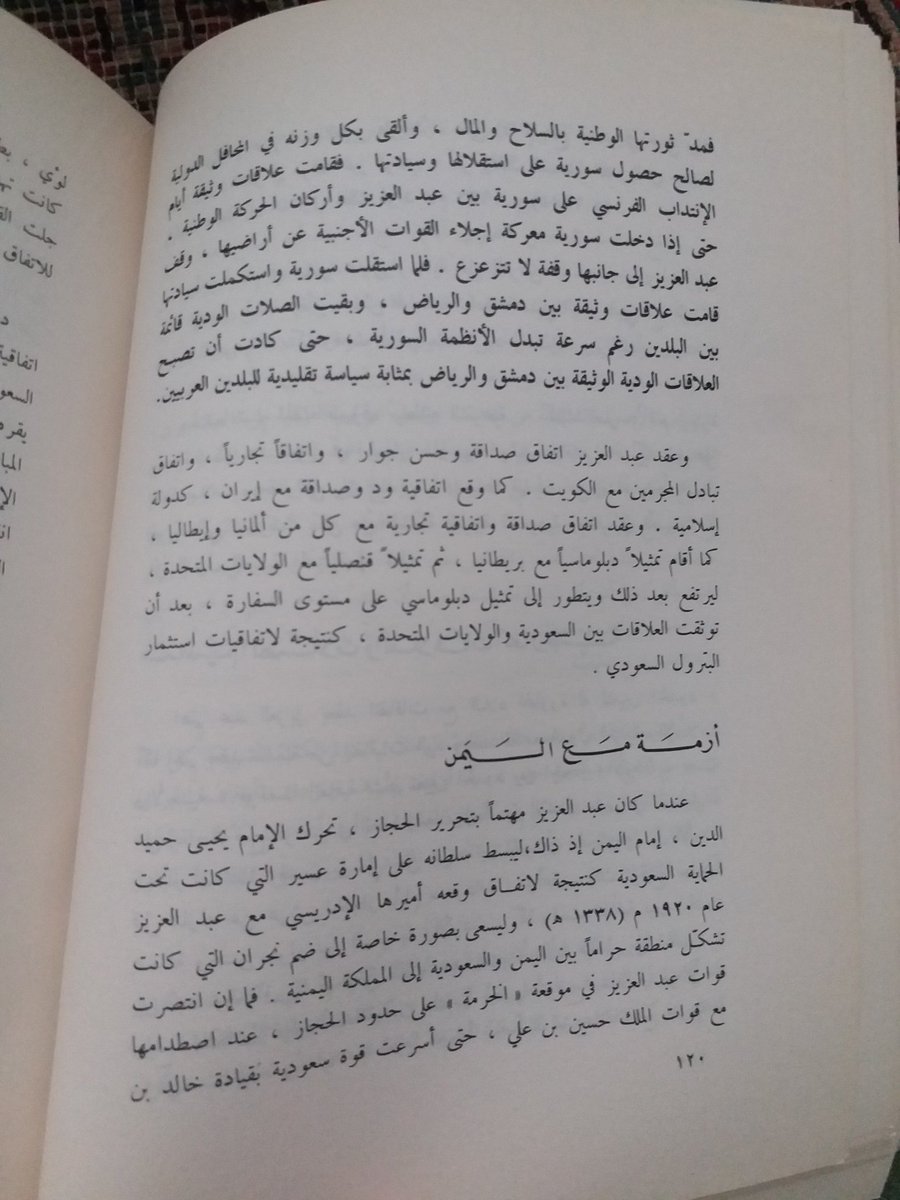 فمدّ ثورتها الوطنية بالسلاح والمال ، وألقى بكل وزنه في المحافل الدولية
لصالح حصول سورية على استقلالها وسيادتها . فقامت علاقات وثيقة أيام
الإنتداب الفرنسي على سورية بين عبد العزيز وأركان الحركة الوطنية .
حتى إذا دخلت سورية معركة إجلاء القوات الأجنبية عن أراضيها ، وقف
عبد العزيز إلى جانبها وقفة لا تتزعزع . فلما استقلت سورية واستكملت سيادتها
قامت علاقات وثيقة بين دمشق والرياض ، وبقيت الصلات الودية قائمة
بين البلدين رغم سرعة تبدل الأنظمة السورية ، حتى كادت أن تصبح
العلاقات الودية الوثيقة بين دمشق والرياض بمثابة سياسة تقليدية للبلدين العربيين.
وعقد عبد العزيز اتفاق صداقة وحسن جوار ، واتفاقاً تجارياً ، واتفاق
تبادل المجرمين مع الكويت . كما وقع اتفاقية ود وصداقة مع إيران ، كدولة
إسلامية . وعقد اتفاق صداقة واتفاقية تجارية مع كل من ألمانيا وإيطاليا ،
كما أقام تمثيلاً دبلوماسياً مع بريطانيا ، ثم تمثيلاً قنصلياً مع الولايات المتحدة ،
ليرتفع بعد ذلك ويتطور إلى تمثيل دبلوماسي على مستوى السفارة ، بعد أن
توثقت العلاقات بين السعودية والولايات المتحدة ، كنتيجة لاتفاقيات استثمار
البترول السعودي .
أزمة مع اليمن
عندما كان عبد العزيز مهتماً بتحرير الحجاز ، تحرك الإمام يحيى حميد
الدين ، إمام اليمن إذ ذاك،ليبسط سلطانه على إمارة عسير التي كانت تحت
الحماية السعودية كنتيجة لاتفاق وقعه أميرها الإدريسي مع عبد العزيز
عام ١٩٢٠ م (١٣٣٨ ه) ، وليسعى بصورة خاصة إلى ضم نجران التي كانت
تشكّل منطقة حراماً بين اليمن والسعودية إلى المملكة اليمنية . فما إن انتصرت
قوات عبد العزيز في موقعة « الخرمة » على حدود الحجاز ، عند اصطدامها
مع قوات الملك حسين بن علي ، حتى أسرعت قوة سعودية بقيادة خالد بن
١٢٠